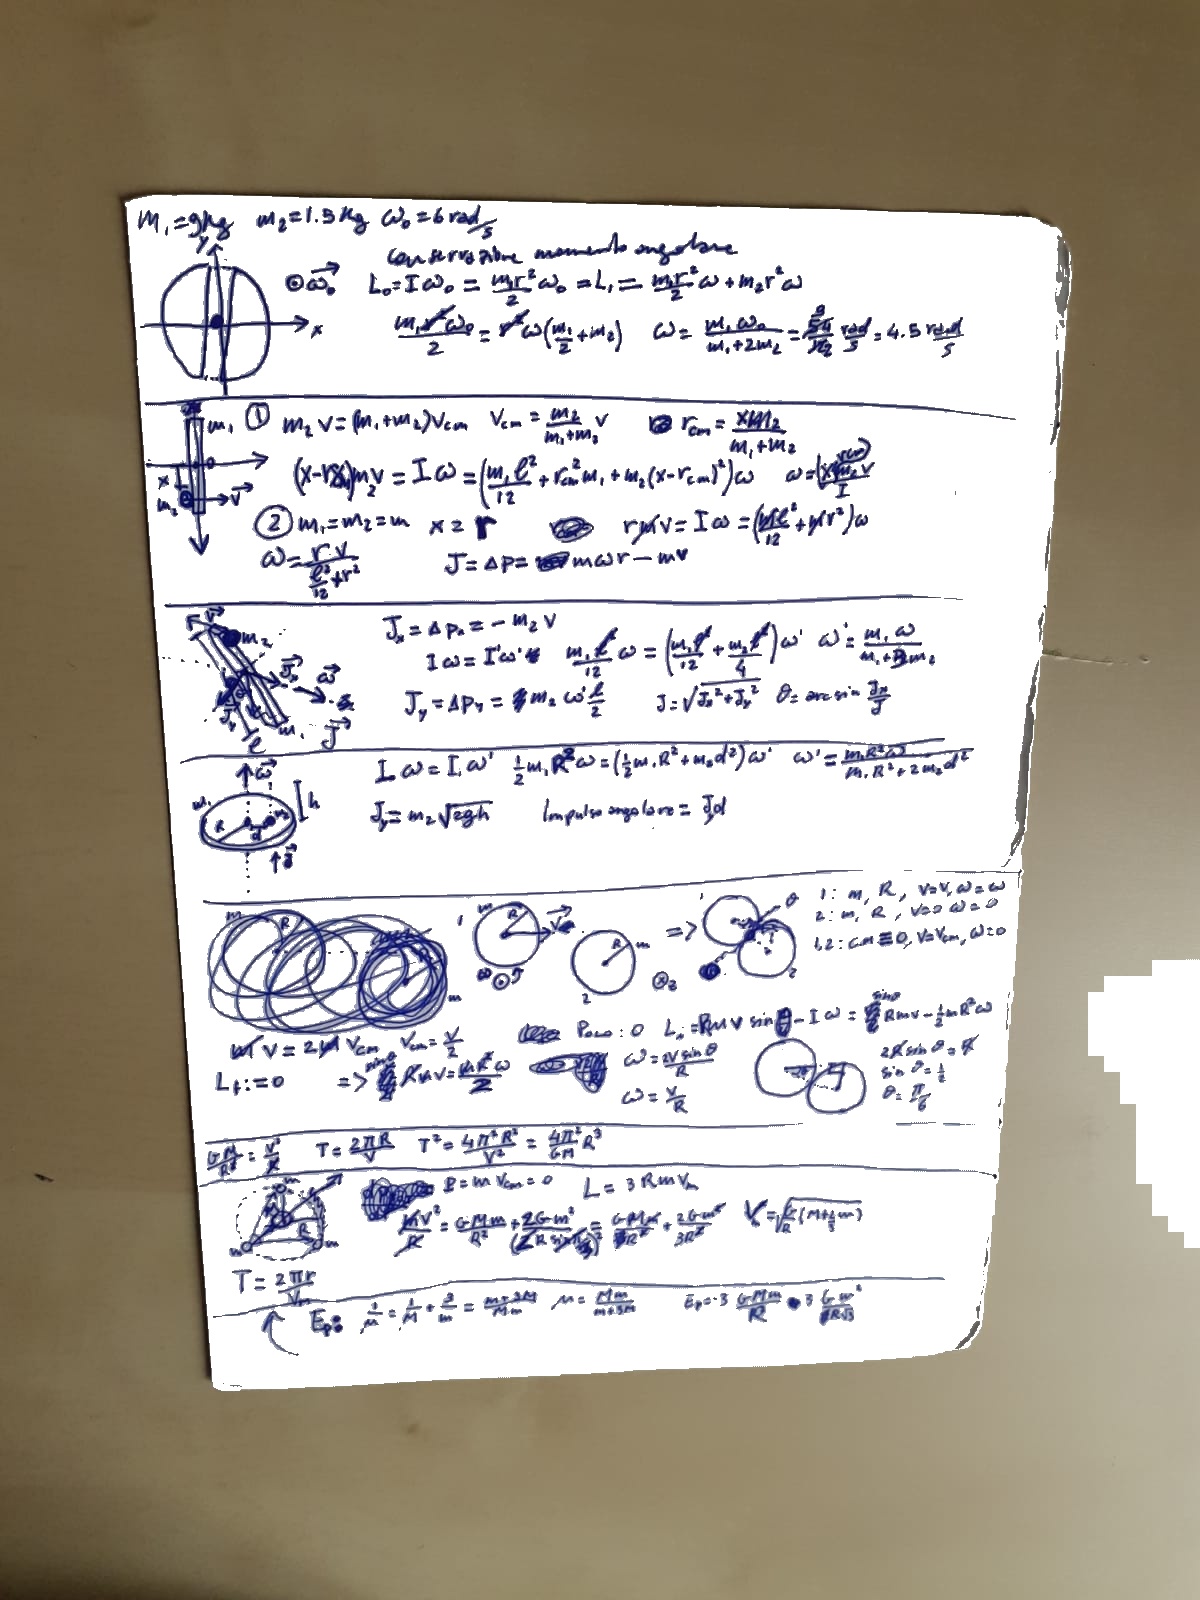 m₁=9kg m₂=1.5kg ω₀=6 rad/s
conservazione momento angolare
y x ⊙ω₀ L₀=Iω₀ = m₁r²/2 ω₀ = L₁ = m₁r²/2 ω + m₂r²ω
m₁r²ω₀/2 = r²ω(m₁/2 + m₂) ω = m₁ω₀/(m₁+2m₂) = 54/12 rad/s = 4.5 rad/s
① m₂v=(m₁+m₂)Vcm Vcm = m₂/(m₁+m₂) v rcm = xm₂/(m₁+m₂)
(x-rcm)m₂v = Iω = (m₁ℓ²/12 + rcm²m₁ + m₂(x-rcm)²)ω ω = (x-rcm)m₂v/I
② m₁=m₂=m x = r rmv = Iω = (mℓ²/12 + mr²)ω
ω = rv/(ℓ²/12+r²) J = Δp = mωr - mv
Jₓ = Δpₓ = -m₂v
Iω = I'ω' m₁ℓ²/12 ω = (m₁ℓ²/12 + m₂ℓ²/4)ω' ω' = m₁ω/(m₁+3m₂)
Jy = Δpy = m₂ω'ℓ/2 J = √(Jₓ²+Jy²) θ = arcsin Jₓ/J
Iω = I₁ω' ½m₁R²ω = (½m₁R²+m₂d²)ω' ω' = m₁R²ω/(m₁R²+2m₂d²)
Jy = m₂√2gh Impulso angolare = Jyd
1: m, R, v=v, ω=ω
2: m, R, v=0 ω=0
1,2: cm≡0, v=Vcm, ω=0
Polo: 0 Lᵢ = Rmv sinθ - Iω = sinθ Rmv - ½mR²ω
mv = 2mVcm Vcm = v/2
Lf := 0 => sinθ Rmv = mR²ω/2 ω = 2v sinθ/R
ω = v/R
2R sinθ = R
sinθ = ½
θ = π/6
GM/R² = v²/R T = 2πR/v T² = 4π²R²/v² = 4π²/GM R³
P = mVcm = 0 L = 3RmVm
mv²/R = GMm/R² + 2Gm²/(2R sin π/3)² = GMm/R² + 2Gm²/3R²
T = 2πr/Vm
Ep: 1/μ = 1/M + 3/m = (m+3M)/Mm μ = Mm/(m+3M) Ep = -3 GMm/R - 3 Gm²/R√3